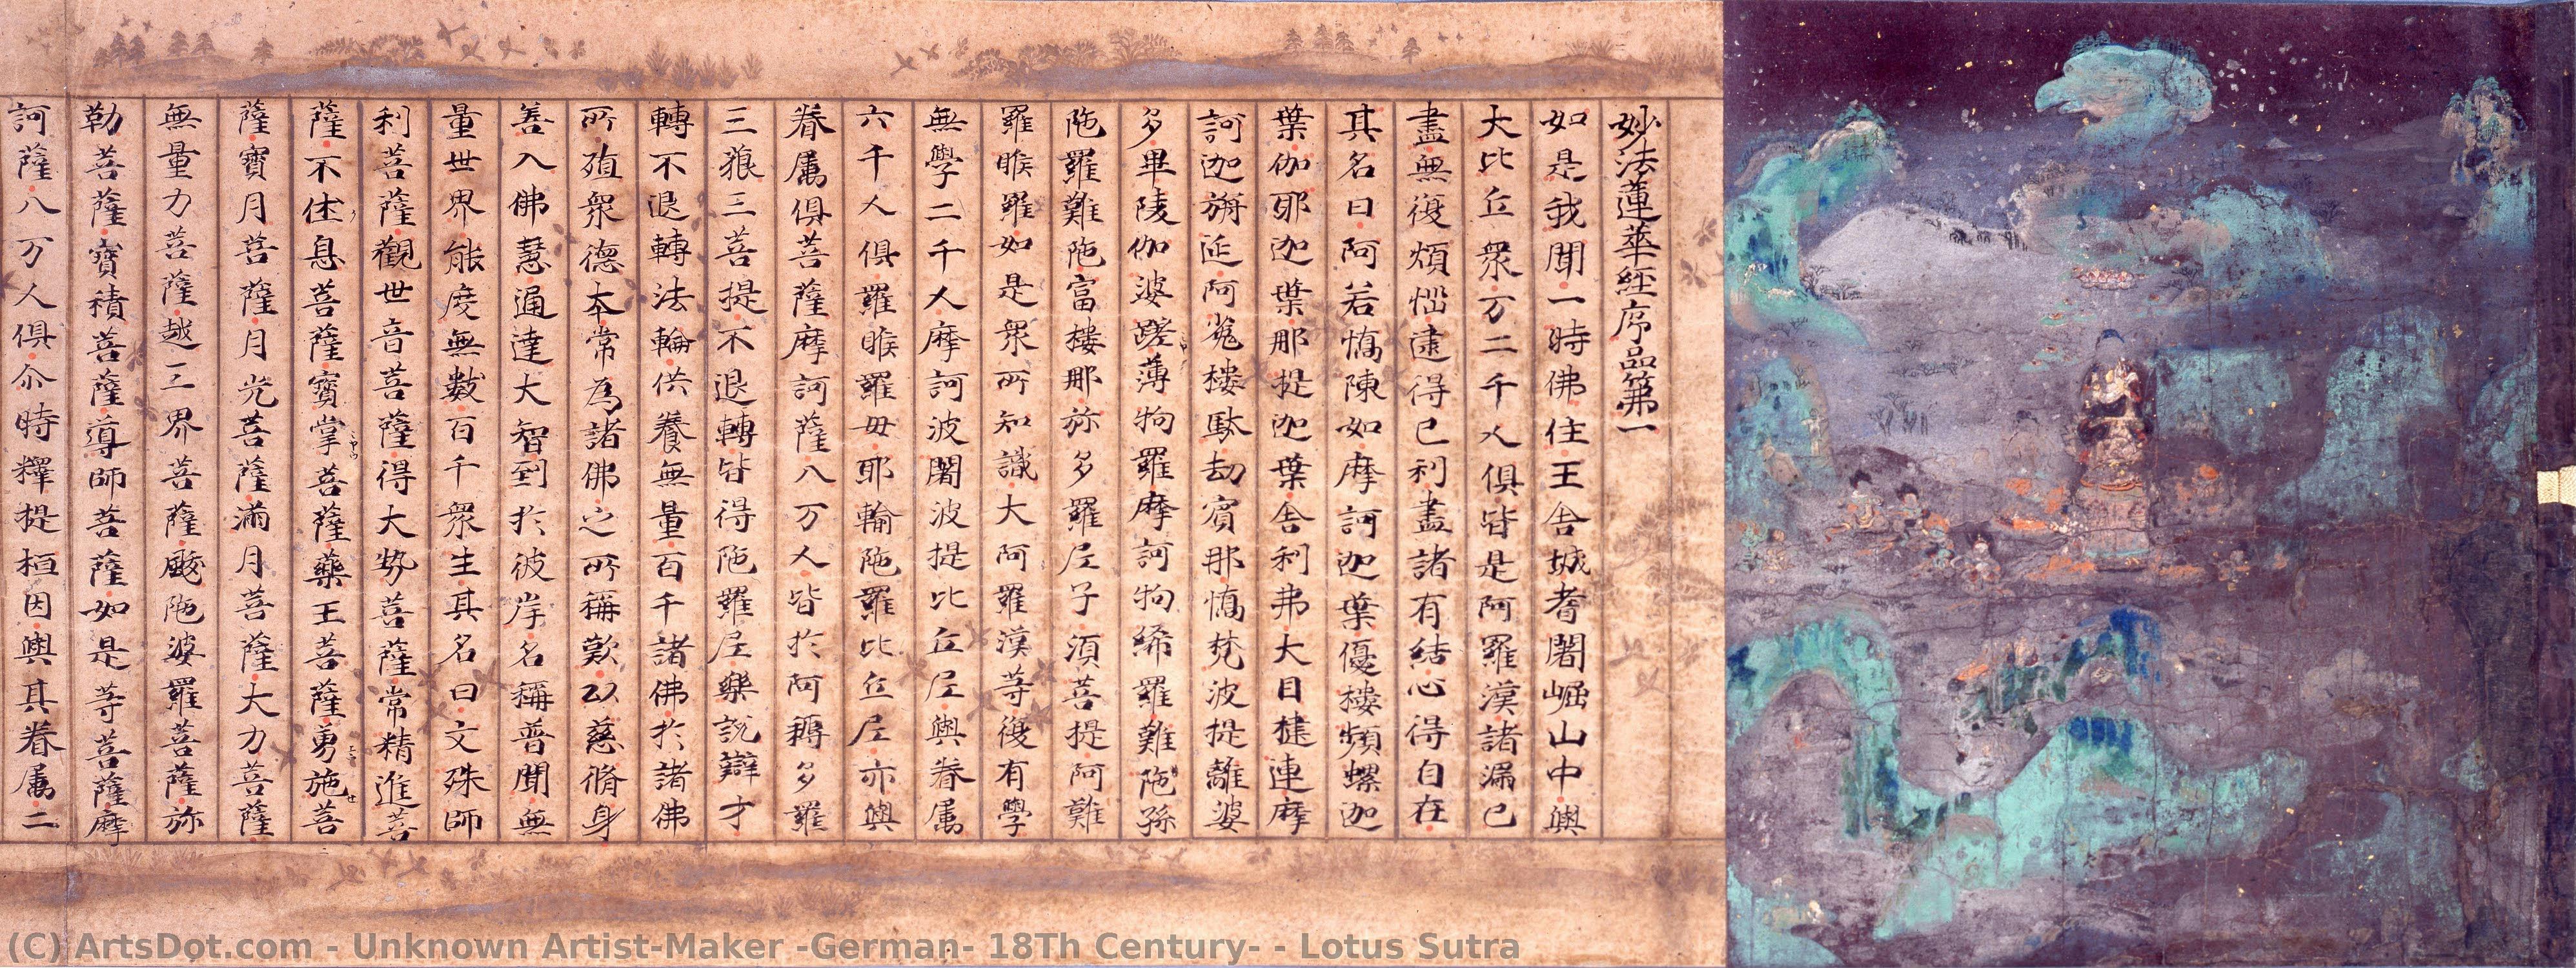 妙法蓮華經序品第一
如是我聞一時佛住王舍城耆闍崛山中與
大比丘衆万二千人俱皆是阿羅漢諸漏已
盡無復煩惱逮得己利盡諸有結心得自在
其名曰阿若憍陳如摩訶迦葉優樓頻螺迦
葉伽耶迦葉那提迦葉舍利弗大目揵連摩
訶迦旃延阿㝹樓馱劫賓那憍梵波提離婆
多畢陵伽婆蹉薄拘羅摩訶拘絺羅難陁孫
陁羅難陁富樓那弥多羅尼子湏菩提阿難
羅睺羅如是衆所知識大阿羅漢等復有學
無學二千人摩訶波闍波提比丘尼與眷属
六千人俱羅睺羅母耶輸陁羅比丘尼亦與
眷属俱菩薩摩訶薩八万人皆於阿耨多羅
三藐三菩提不退轉皆得陁羅尼樂說辯才
轉不退轉法輪供養無量百千諸佛於諸佛
所殖衆德本常為諸佛之所稱歎以慈脩身
善入佛慧通達大智到於彼岸名稱普聞無
量世界能度無數百千衆生其名曰文殊師
利菩薩觀世音菩薩得大勢菩薩常精進菩
薩不休息菩薩寶掌菩薩藥王菩薩勇施菩
薩寶月菩薩月光菩薩滿月菩薩大力菩薩
無量力菩薩越三界菩薩颰陁婆羅菩薩弥
勒菩薩寶積菩薩導師菩薩如是等菩薩摩
訶薩八万人俱尒時釋提桓因與其眷属二
(C) ArtsDot.com - Unknown Artist-Maker -German- 18Th Century- - Lotus Sutra